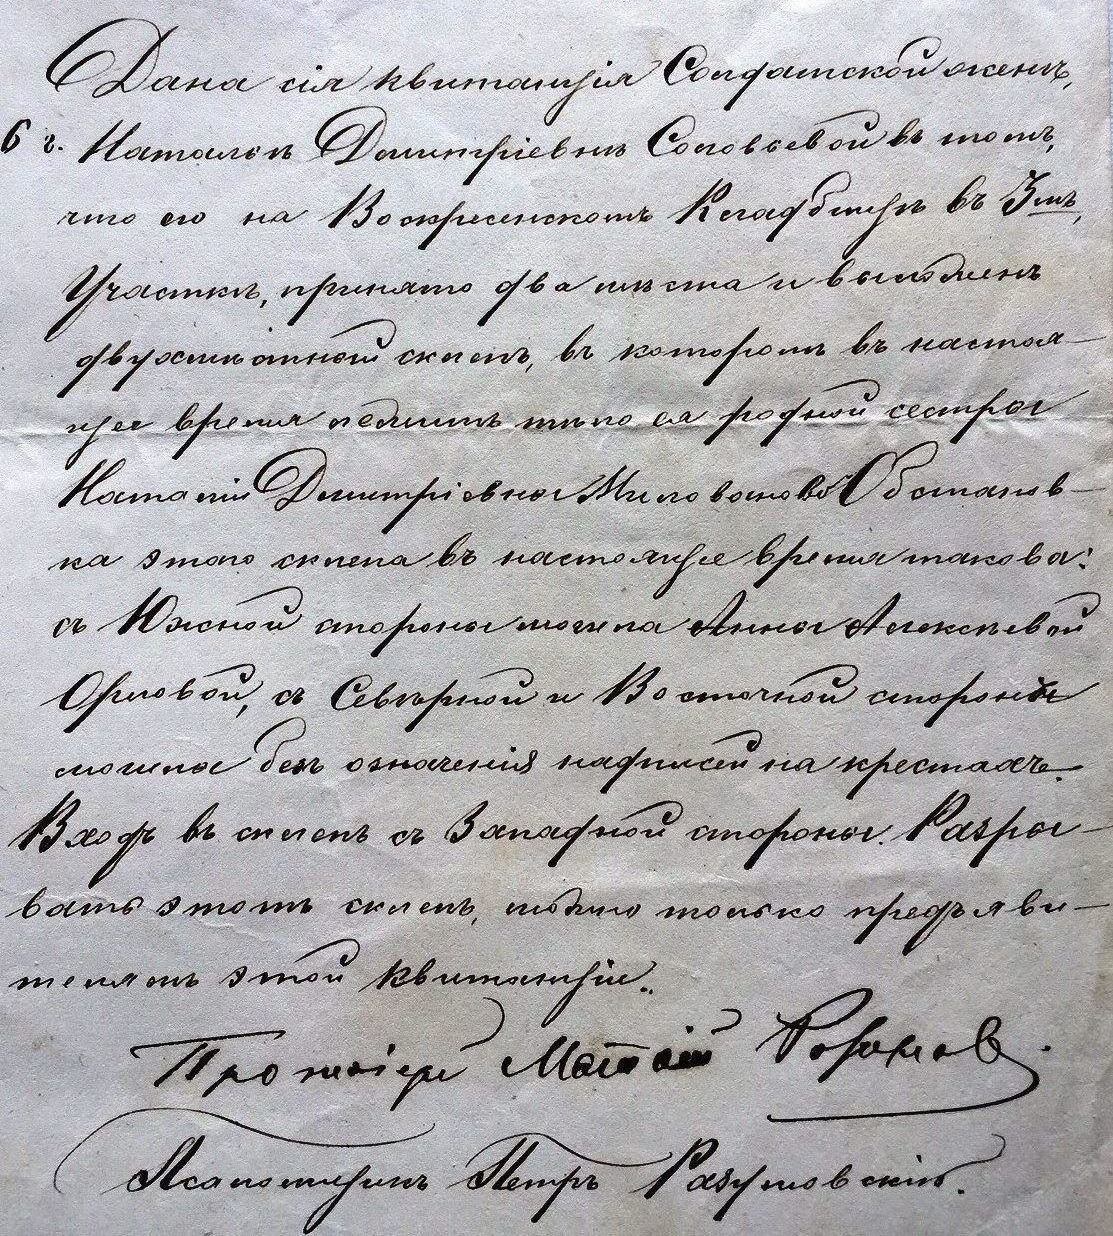 Дана сія квитанція Солдатской женѣ,
6 г. Натальѣ Дмитріевнѣ Соловьевой въ томъ,
что ею на Воскресенскомъ Кладбищѣ въ 3мъ,
Участкѣ, принято два мѣста и выложенъ
двухмѣстной склепъ, въ которомъ въ настоя-
щее время лежитъ тѣло ея родной сестры
Наталіи Дмитріевны Миловановой Обстанов-
ка этого склепа въ настоящее время такова:
съ Южной стороны могила Анны Алексѣевой
Орловой, съ Сѣверной и Восточной стороны
могила безъ означенія надписей на крестахъ.
Входъ въ склепъ съ Западной стороны. Разры-
вать этотъ склепъ, можно только предъяви-
телямъ этой квитанціи.
Протоіерей Матѳій
Псаломщикъ Петръ Разумовскій.